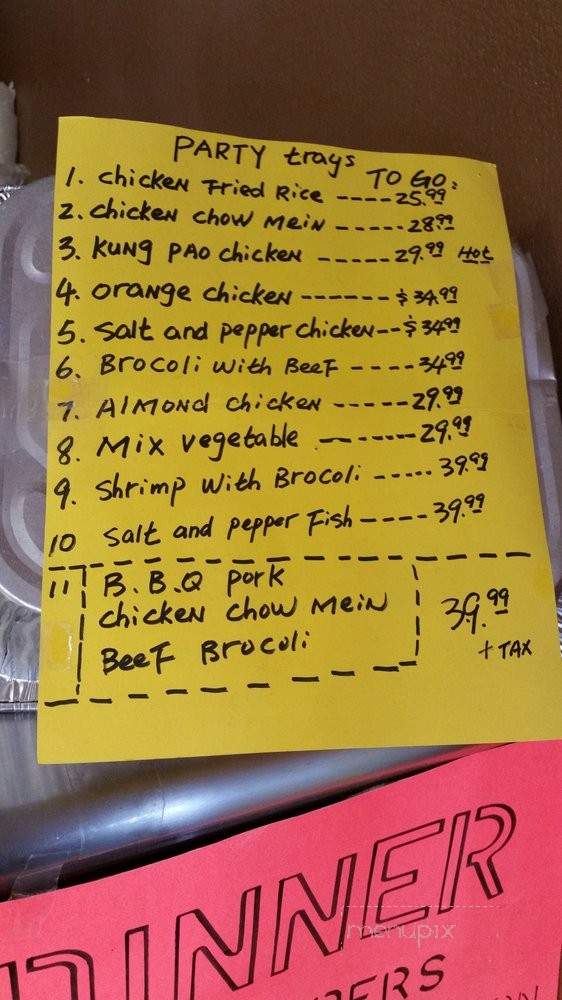 PARTY trays TO GO:
1. chicken Fried Rice ---- 25.99
2. chicken chow mein ----- 28.99
3. Kung pao chicken ----- 29.99 Hot
4. orange chicken ------ $34.99
5. salt and pepper chicken -- $34.99
6. Brocoli with Beef ---- 34.99
7. Almond chicken ----- 29.99
8. Mix vegetable ------ 29.99
9. Shrimp with Brocoli ----- 39.99
10 salt and pepper Fish ---- 39.99
11 B.B.Q pork
chicken chow mein 39.99
Beef Brocoli + TAX
DINNER
menupix